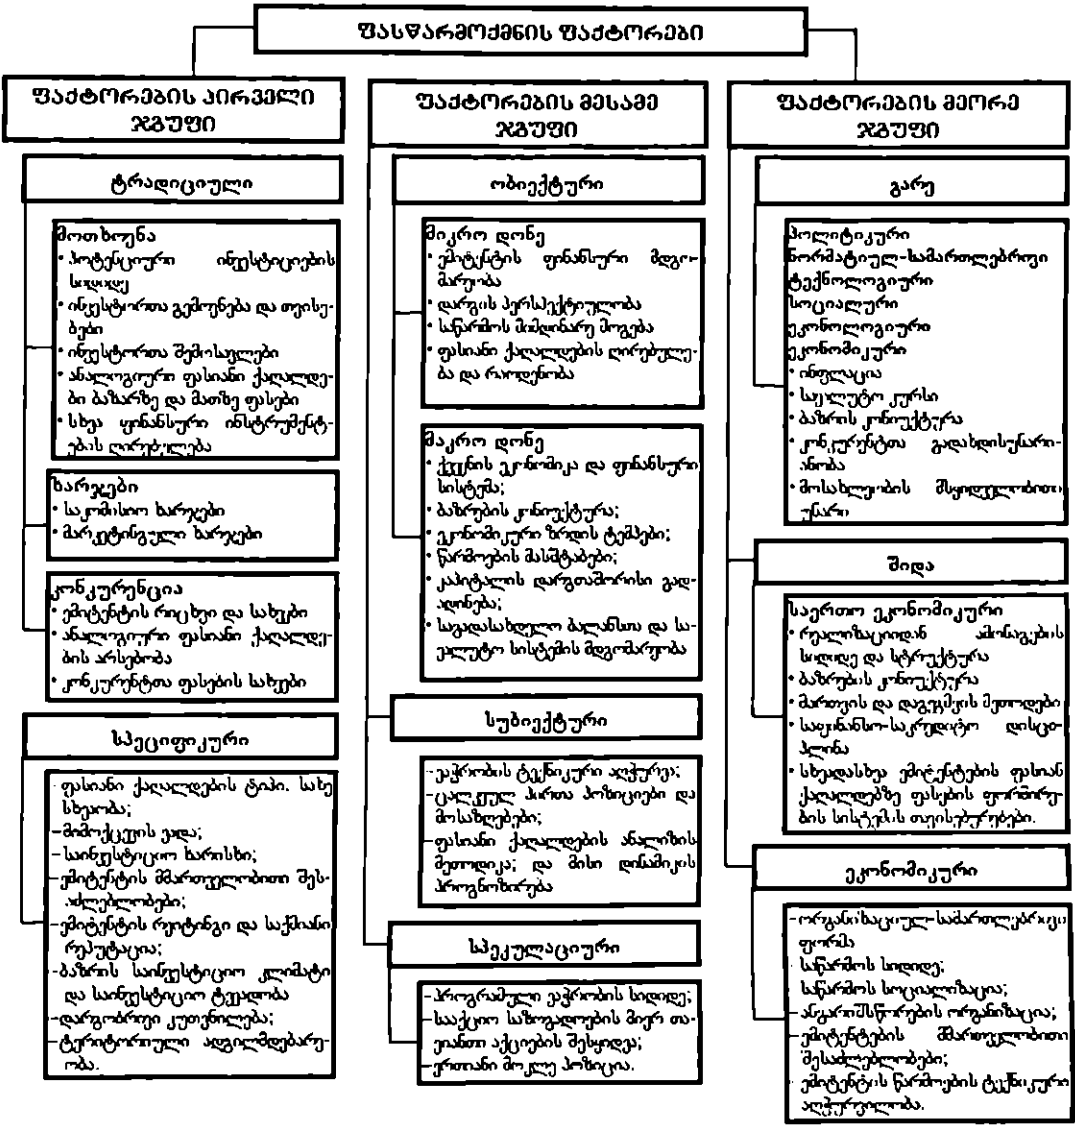 ფასწარმოქმნის ფაქტორები
ფაქტორების პირველი
ჯგუფი
ტრადიციული
მოთხოვნა
• პოტენციური ინვესტიციების
სიდიდე
• ინვესტორთა გემოვნება და თვისე-
ბები
• ინვესტორთა შემოსავლები
• ანალოგიური ფასიანი ქაღალდე-
ბი ბაზარზე და მათზე ფასები
• სხვა ფინანსური ინსტრუმენტ-
ების ღირებულება
ხარჯები
• საკომისიო ხარჯები
• მარკეტინგული ხარჯები
კონკურენცია
• ემიტენტის რიცხვი და სახეები
• ანალოგიური ფასიანი ქაღალდე-
ბის არსებობა
• კონკურენტთა ფასების სახეები
სპეციფიკური
- ფასიანი ქაღალდების ტიპი. სახე
სხეობა;
–მიმოქცევის ვადა;
–საინვესტიციო ხარისხი;
–ემიტენტის მმართველობითი შეს-
აძლებლობები;
–ემიტენტის რეიტინგი და საქმიანი
რეპუტაცია;
–ბაზრის საინვესტიციო კლიმატი
და საინვესტიციო ტევადობა
–დარგობრივი კუთვნილება;
–ტერიტორიული ადგილმდებარე-
ობა.
ფაქტორების მესამე
ჯგუფი
ობიექტური
მიკრო დონე
• ემიტენტის ფინანსური მდგო-
მარეობა
• დარგის პერსპექტიულობა
• საწარმოს მიმდინარე მოგება
• ფასიანი ქაღალდების ღირებულე-
ბა და რაოდენობა
მაკრო დონე
• ქვეყნის ეკონომიკა და ფინანსური
სისტემა;
• ბაზრების კონიუქტურა;
• ეკონომიკური ზრდის ტემპები;
• წარმოების მასშტაბები;
• კაპიტალის დარგთაშორისი გად-
ადინება;
• საგადასახდელო ბალანსთა და სა-
ვალუტო სისტემის მდგომარეობა
სუბიექტური
–ვაჭრობის ტექნიკური აღჭურვა;
–ცალკეულ პირთა პოზიციები და
მოსაზღებები;
–ფასიანი ქაღალდების ანალიზის
მეთოდიკა; და მისი დინამიკის
პროგნოზირება
სპეკულაციური
–პროგრამული ვაჭრობის სიდიდე;
–სააქციო საზოგადოების მიერ თა-
ვიანთი აქციების შესყიდვა;
–ერთიანი მოკლე პოზიცია.
ფაქტორების მეორე
ჯგუფი
გარე
პოლიტიკური
ნორმატიულ-სამართლებრივი
ტექნოლოგიური
სოციალური
ეკონოლოგიური
ეკონომიკური
• ინფლაცია
• სავალუტო კურსი
• ბაზრის კონიუქტურა
• კონკურენტთა გადახდისუნარი-
ანობა
• მოსახლეობის მსყიდველობითი
უნარი
შიდა
საერთო ეკონომიკური
• რეალიზაციიდან ამონაგების
სიდიდე და სტრუქტურა
• ბაზრების კონიუქტურა
• მართვის და დაგეგმვის მეთოდები
• საფინანსო-საკრედიტო დისცი-
პლინა
• სხვადასხვა ემიტენტების ფასიან
ქაღალდებზე ფასების ფორმირე-
ბის სისტემის თავისებურებები.
ეკონომიკური
–ორგანიზაციულ-სამართლებრივი
ფორმა
საწარმოს სიდიდე;
საწარმოს სოციალიზაცია;
–ანგარიშსწორების ორგანიზაცია;
–ემიტენტების მმართველობითი
შესაძლებლობები;
- ემიტენტის წარმოების ტექნიკური
აღჭურვილობა.